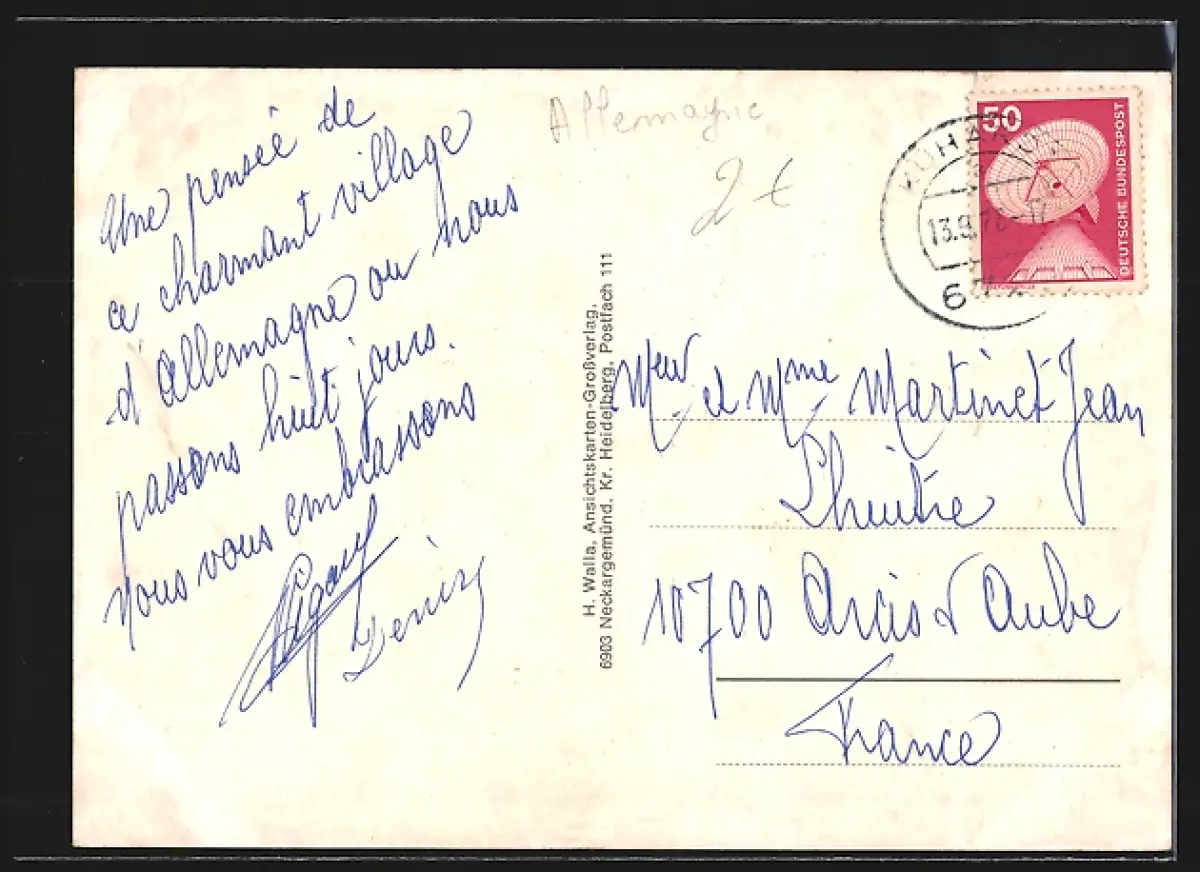 Une pensée de
ce charmant village
d'Allemagne ou nous
passons huit jours.
nous vous embrassons
Denise
Allemagne
2 €
50
DEUTSCHE BUNDESPOST
13.9.7
6
H. Walla, Ansichtskarten-Großverlag,
6903 Neckargemünd, Kr. Heidelberg, Postfach 111
Meur et Mme Martinet Jean
Lhuitre
10700 Arcis s Aube
France